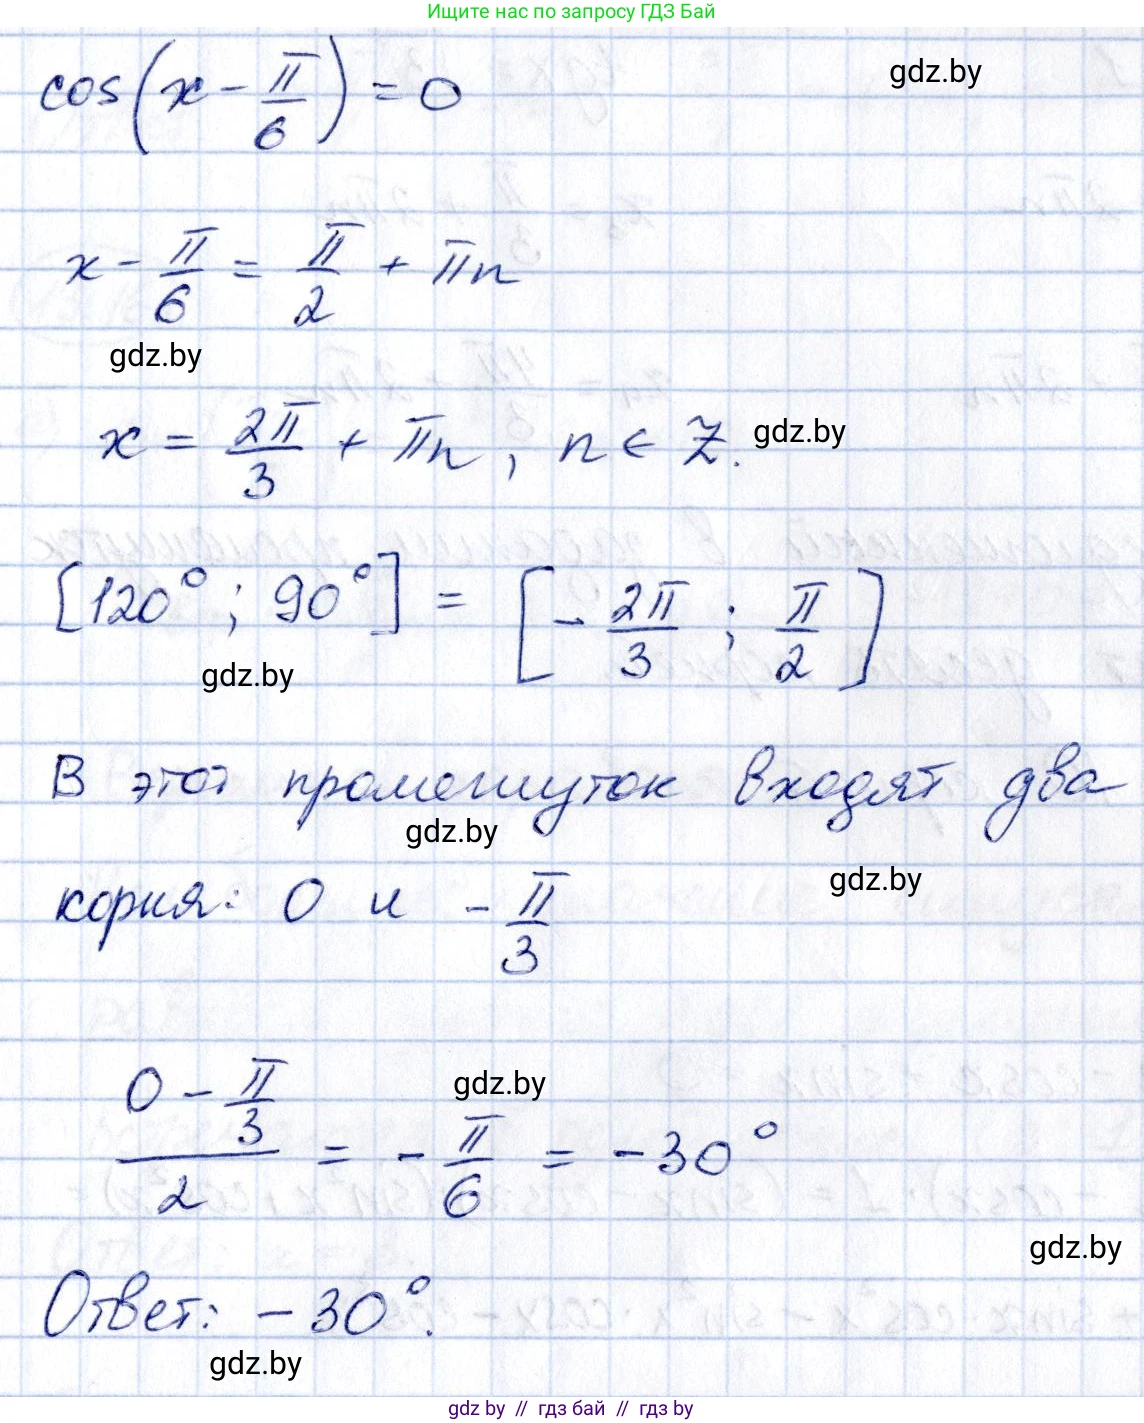 Ищите нас по запросу ГДЗ Бай
cos(x - π/6) = 0
gdz.by
x - π/6 = π/2 + πn
gdz.by
x = 2π/3 + πn, n ∈ Z.
gdz.by
[120°; 90°] = [-2π/3; π/2]
gdz.by
В этот промежуток входят два
gdz.by
корня: 0 и -π/3
gdz.by
(0 - π/3)/2 = -π/6 = -30°
gdz.by
gdz.by
Ответ: -30°.
gdz.by
gdz by // гдз бай // гдз by